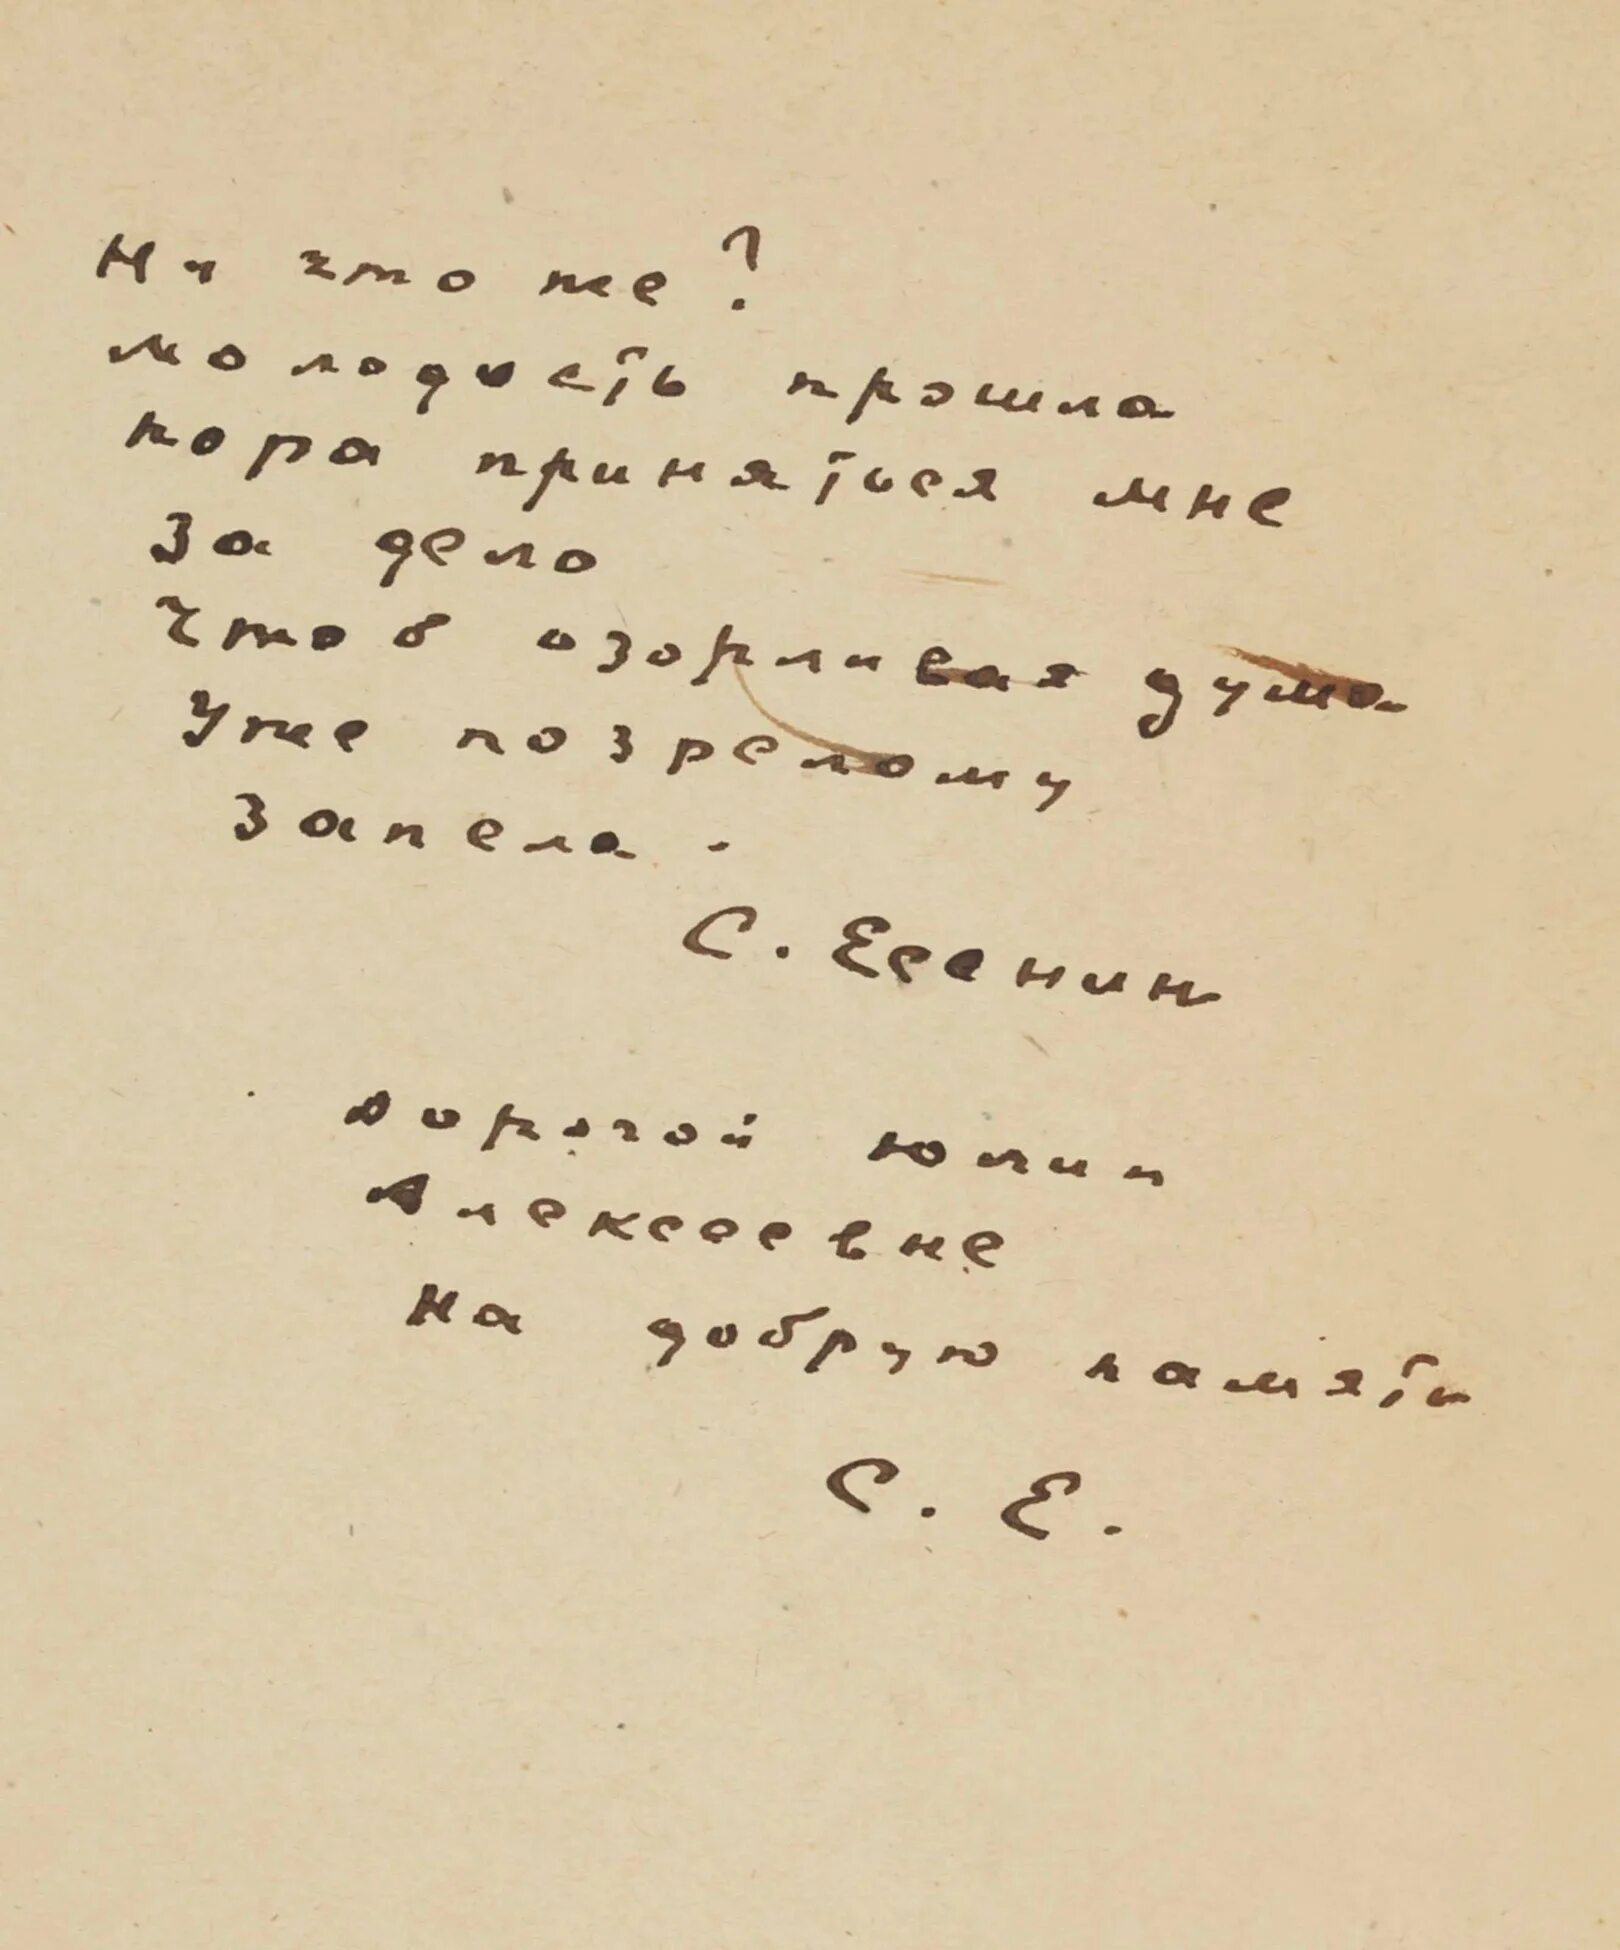 Ну что же?
молодость прошла
пора приняться мне
за дело
Чтоб озорливая дума
Уже по зрелому
запела.
С. Есенин
Дорогой Юлии
Алексеевне
На добрую память
С. Е.